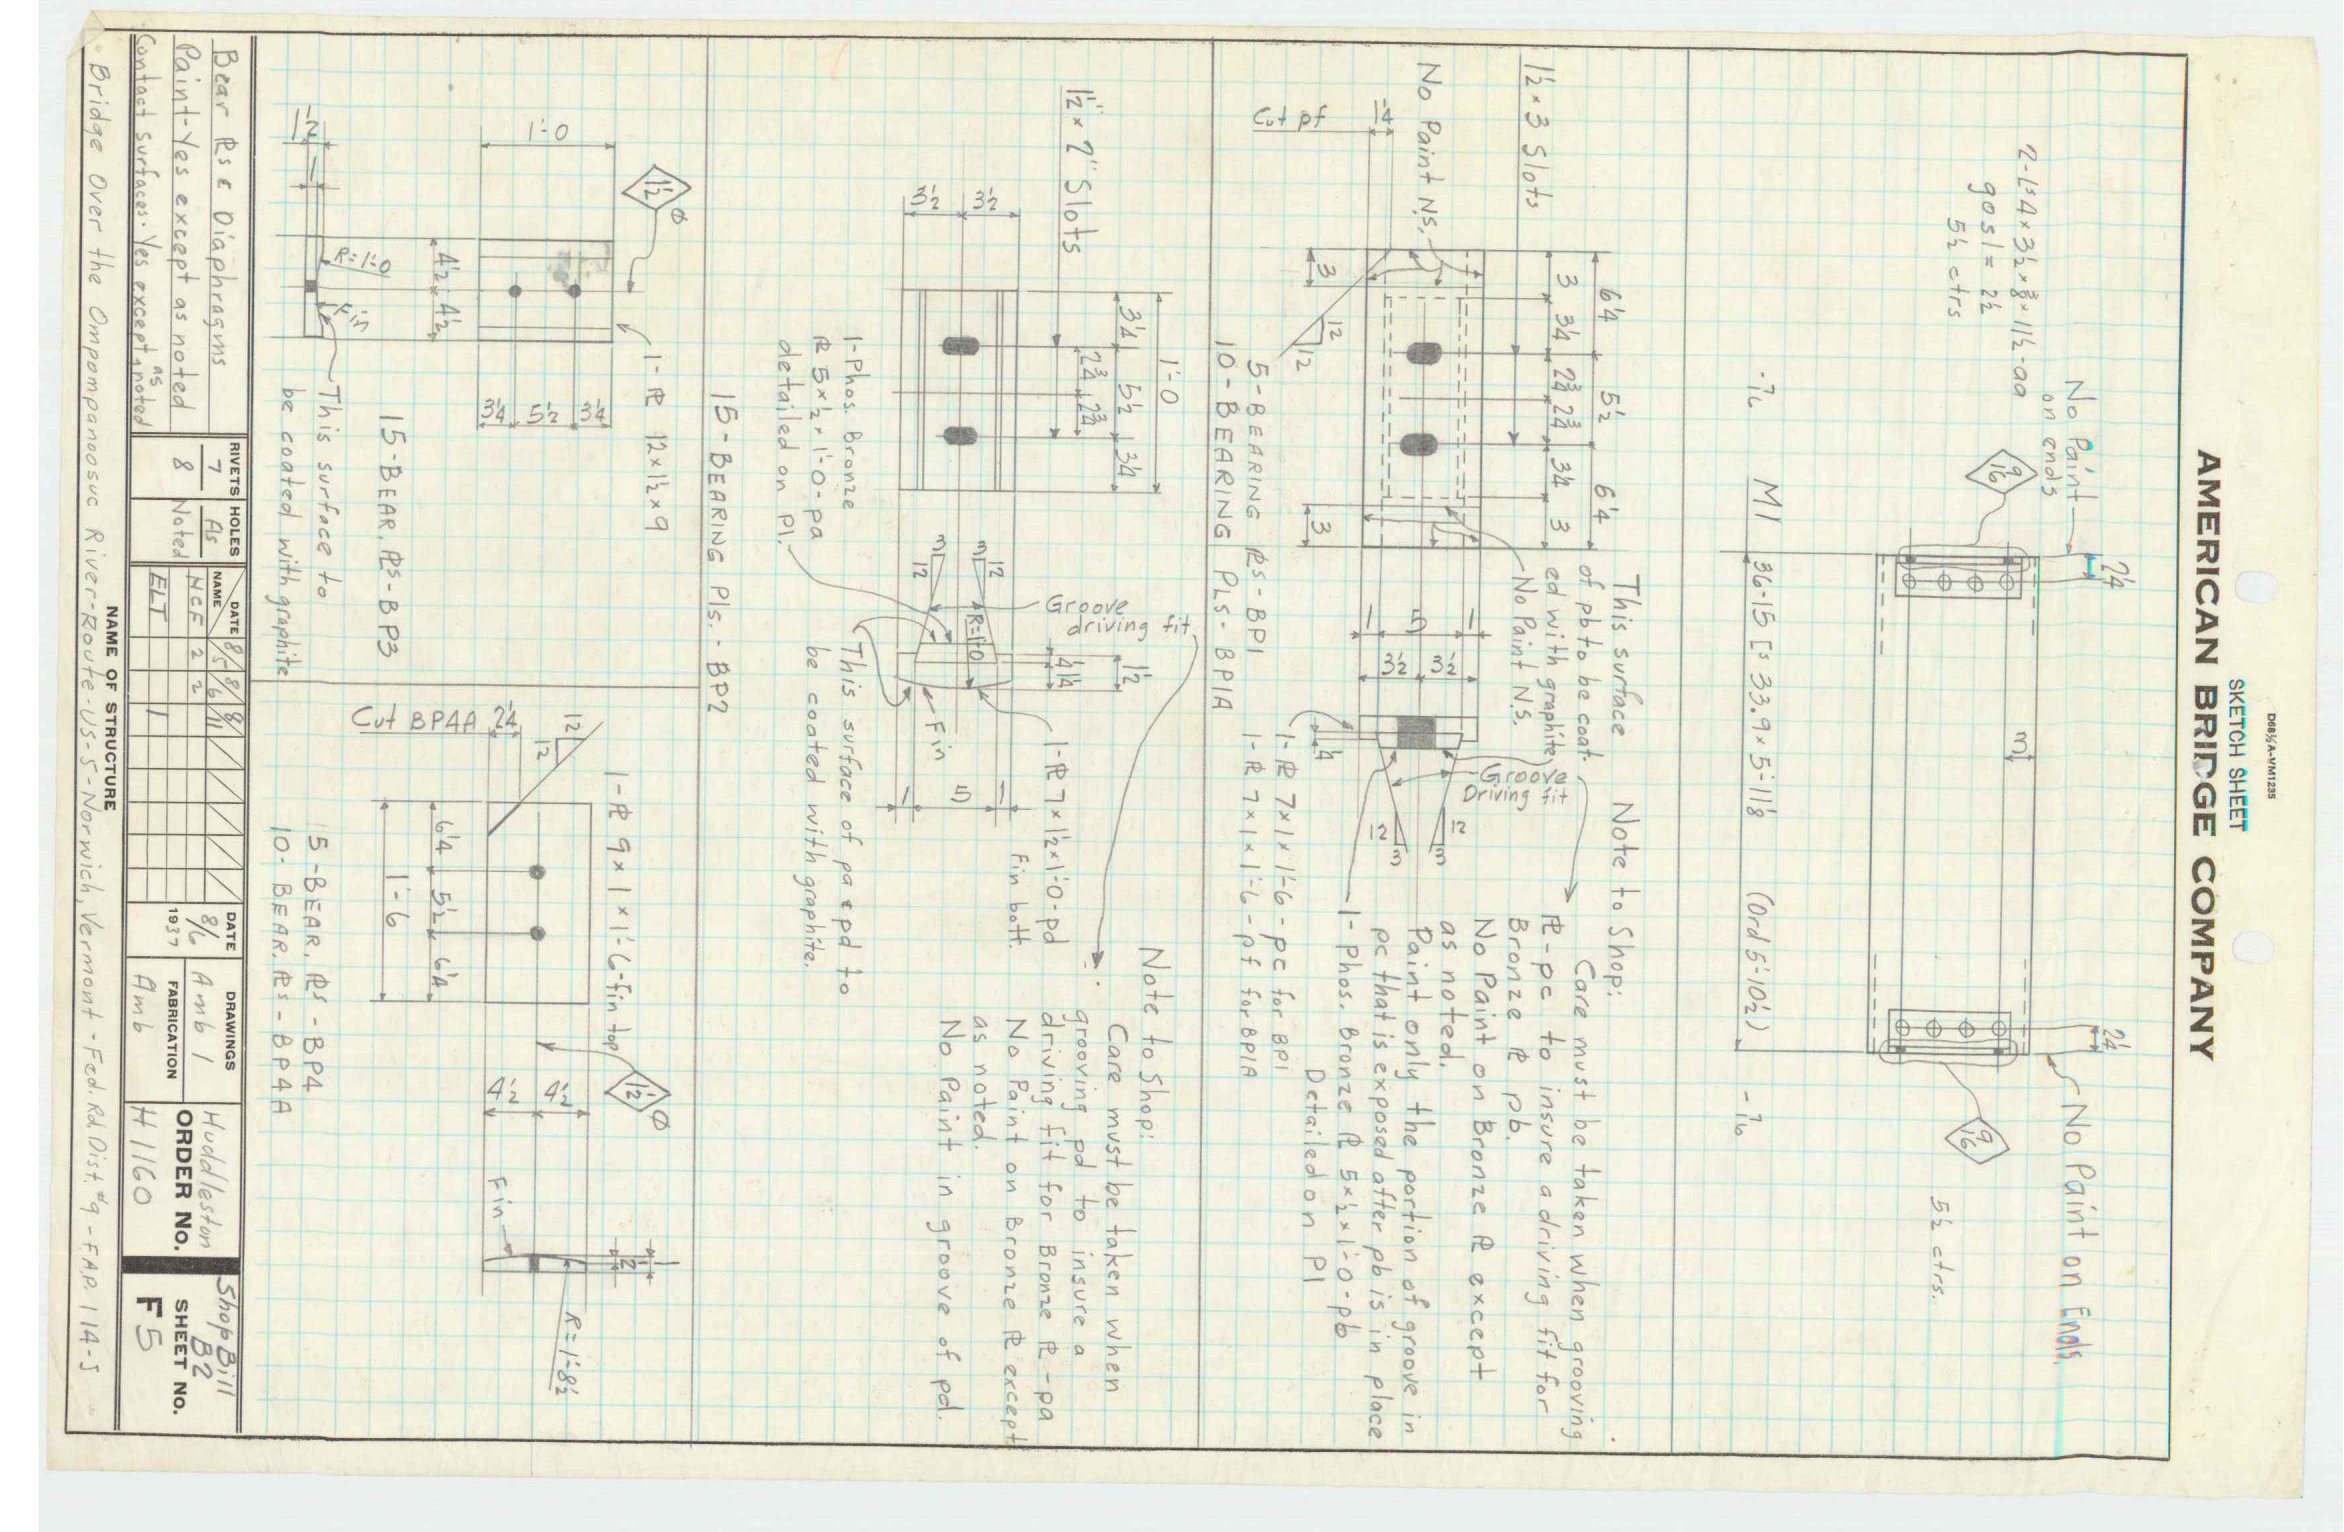 D68½A-VM1235
SKETCH SHEET
AMERICAN BRIDGE COMPANY
2-Ls 4×3½×⅜×11½-aa
90 sl = 2½
5½ ctrs
No Paint
on ends
9/16
2¼
3
2¼
No Paint on Ends
9/16
5½ ctrs.
-7/16
M1
36-15 [s 33.9×5'-11⅛
(Ord 5'-10½)
-7/16
1½×3 Slots
No Paint N.S.
1¼
Cut pf
6¼ 5½ 6¼
3 3¼ 2¾ 2¾ 3¼ 3
3
3
12
12
This surface
of pb to be coat-
ed with graphite
No Paint N.S.
1 5 1
3½ 3½
¼
Groove
Driving fit
12
3
12
3
Note to Shop:
Care must be taken when grooving
PL-pe to insure a driving fit for
Bronze PL pb.
No Paint on Bronze PL except
as noted.
Paint only the portion of groove in
pe that is exposed after pb is in place
1-Phos. Bronze PL 5×½×1'-0-pb
Detailed on P1
5-BEARING PLs-BP1
10-BEARING PLS-BP1A
1-PL 7×1×1'-6-pe for BP1
1-PL 7×1×1'-6-pf for BP1A
1½×2" Slots
3½ 3½
1'-0
3¼ 5½ 3¼
2¾ 2¾
1-Phos. Bronze
PL 5×½×1'-0-pa
detailed on P1.
3
12
3
12
R=1'-0
Groove
driving fit
¼
¼
1½
Fin
1 5 1
1-PL 7×1½×1'-0-pd
Fin bott.
This surface of pa & pd to
be coated with graphite.
Note to Shop:
Care must be taken when
grooving pd to insure a
driving fit for Bronze PL-pa
No Paint on Bronze PL except
as noted.
No Paint in groove of pd.
15-BEARING Pls.-BP2
1½ Ø
1'-0
1½
1
R=1'-0
Fin
4½ 4½
1-PL 12×1½×9
3¼ 5½ 3¼
15-BEAR. PLs-BP3
This surface to
be coated with graphite
Cut BP4A 2¼
12
12
1-PL 9×1×1'-6-fin top
6¼ 5½ 6¼
1'-6
1½ Ø
4½ 4½
Fin
½
1
R=1'-8½
5-BEAR. PLs-BP4
10-BEAR. PLs-BP4A
Bear PLs & Diaphragms
Paint-Yes except as noted
Contact surfaces-Yes except as noted
RIVETS
7
8
HOLES
As
Noted
DATE
NAME
8/5 8/6 8/11
HCF 2 2
ELT 1
DATE
8/6
1937
DRAWINGS
Amb 1
FABRICATION
Amb
Huddleston
ORDER NO.
H1160
Shop Bill
B2
SHEET NO.
F5
NAME OF STRUCTURE
Bridge Over the Ompompanoosuc River-Route-US-5-Norwich, Vermont-Fed. Rd. Dist. #9-F.A.P. 114-J